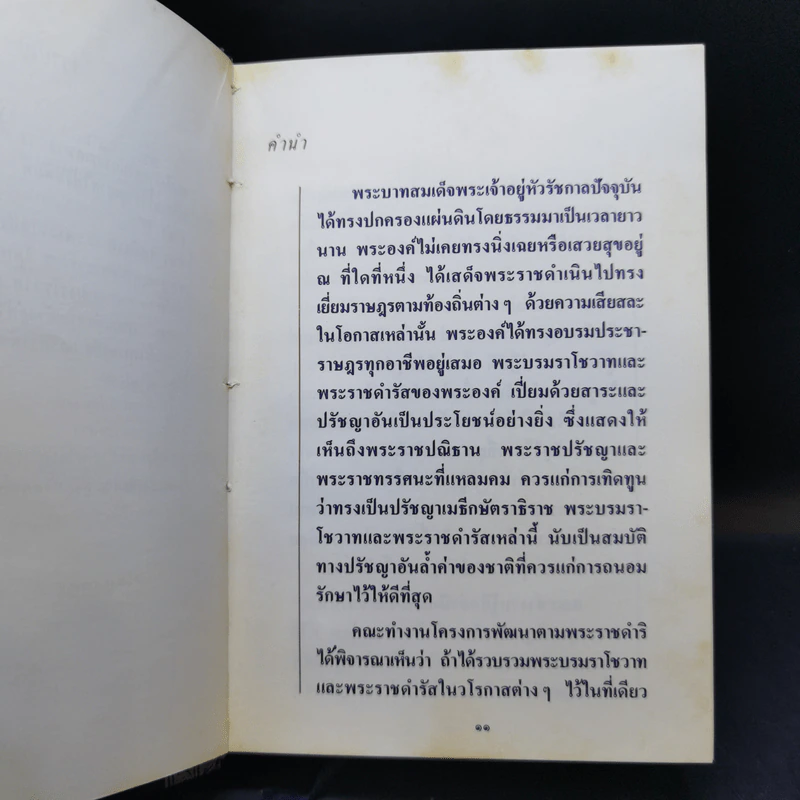 คำนำ
พระบาทสมเด็จพระเจ้าอยู่หัวรัชกาลปัจจุบัน
ได้ทรงปกครองแผ่นดินโดยธรรมมาเป็นเวลายาว
นาน พระองค์ไม่เคยทรงนิ่งเฉยหรือเสวยสุขอยู่
ณ ที่ใดที่หนึ่ง ได้เสด็จพระราชดำเนินไปทรง
เยี่ยมราษฎรตามท้องถิ่นต่าง ๆ ด้วยความเสียสละ
ในโอกาสเหล่านั้น พระองค์ได้ทรงอบรมประชา-
ราษฎรทุกอาชีพอยู่เสมอ พระบรมราโชวาทและ
พระราชดำรัสของพระองค์ เปี่ยมด้วยสาระและ
ปรัชญาอันเป็นประโยชน์อย่างยิ่ง ซึ่งแสดงให้
เห็นถึงพระราชปณิธาน พระราชปรัชญาและ
พระราชทรรศนะที่แหลมคม ควรแก่การเทิดทูน
ว่าทรงเป็นปรัชญาเมธีกษัตราธิราช พระบรมรา-
โชวาทและพระราชดำรัสเหล่านี้ นับเป็นสมบัติ
ทางปรัชญาอันล้ำค่าของชาติที่ควรแก่การถนอม
รักษาไว้ให้ดีที่สุด
คณะทำงานโครงการพัฒนาตามพระราชดำริ
ได้พิจารณาเห็นว่า ถ้าได้รวบรวมพระบรมราโชวาท
และพระราชดำรัสในวโรกาสต่าง ๆ ไว้ในที่เดียว
๑๑